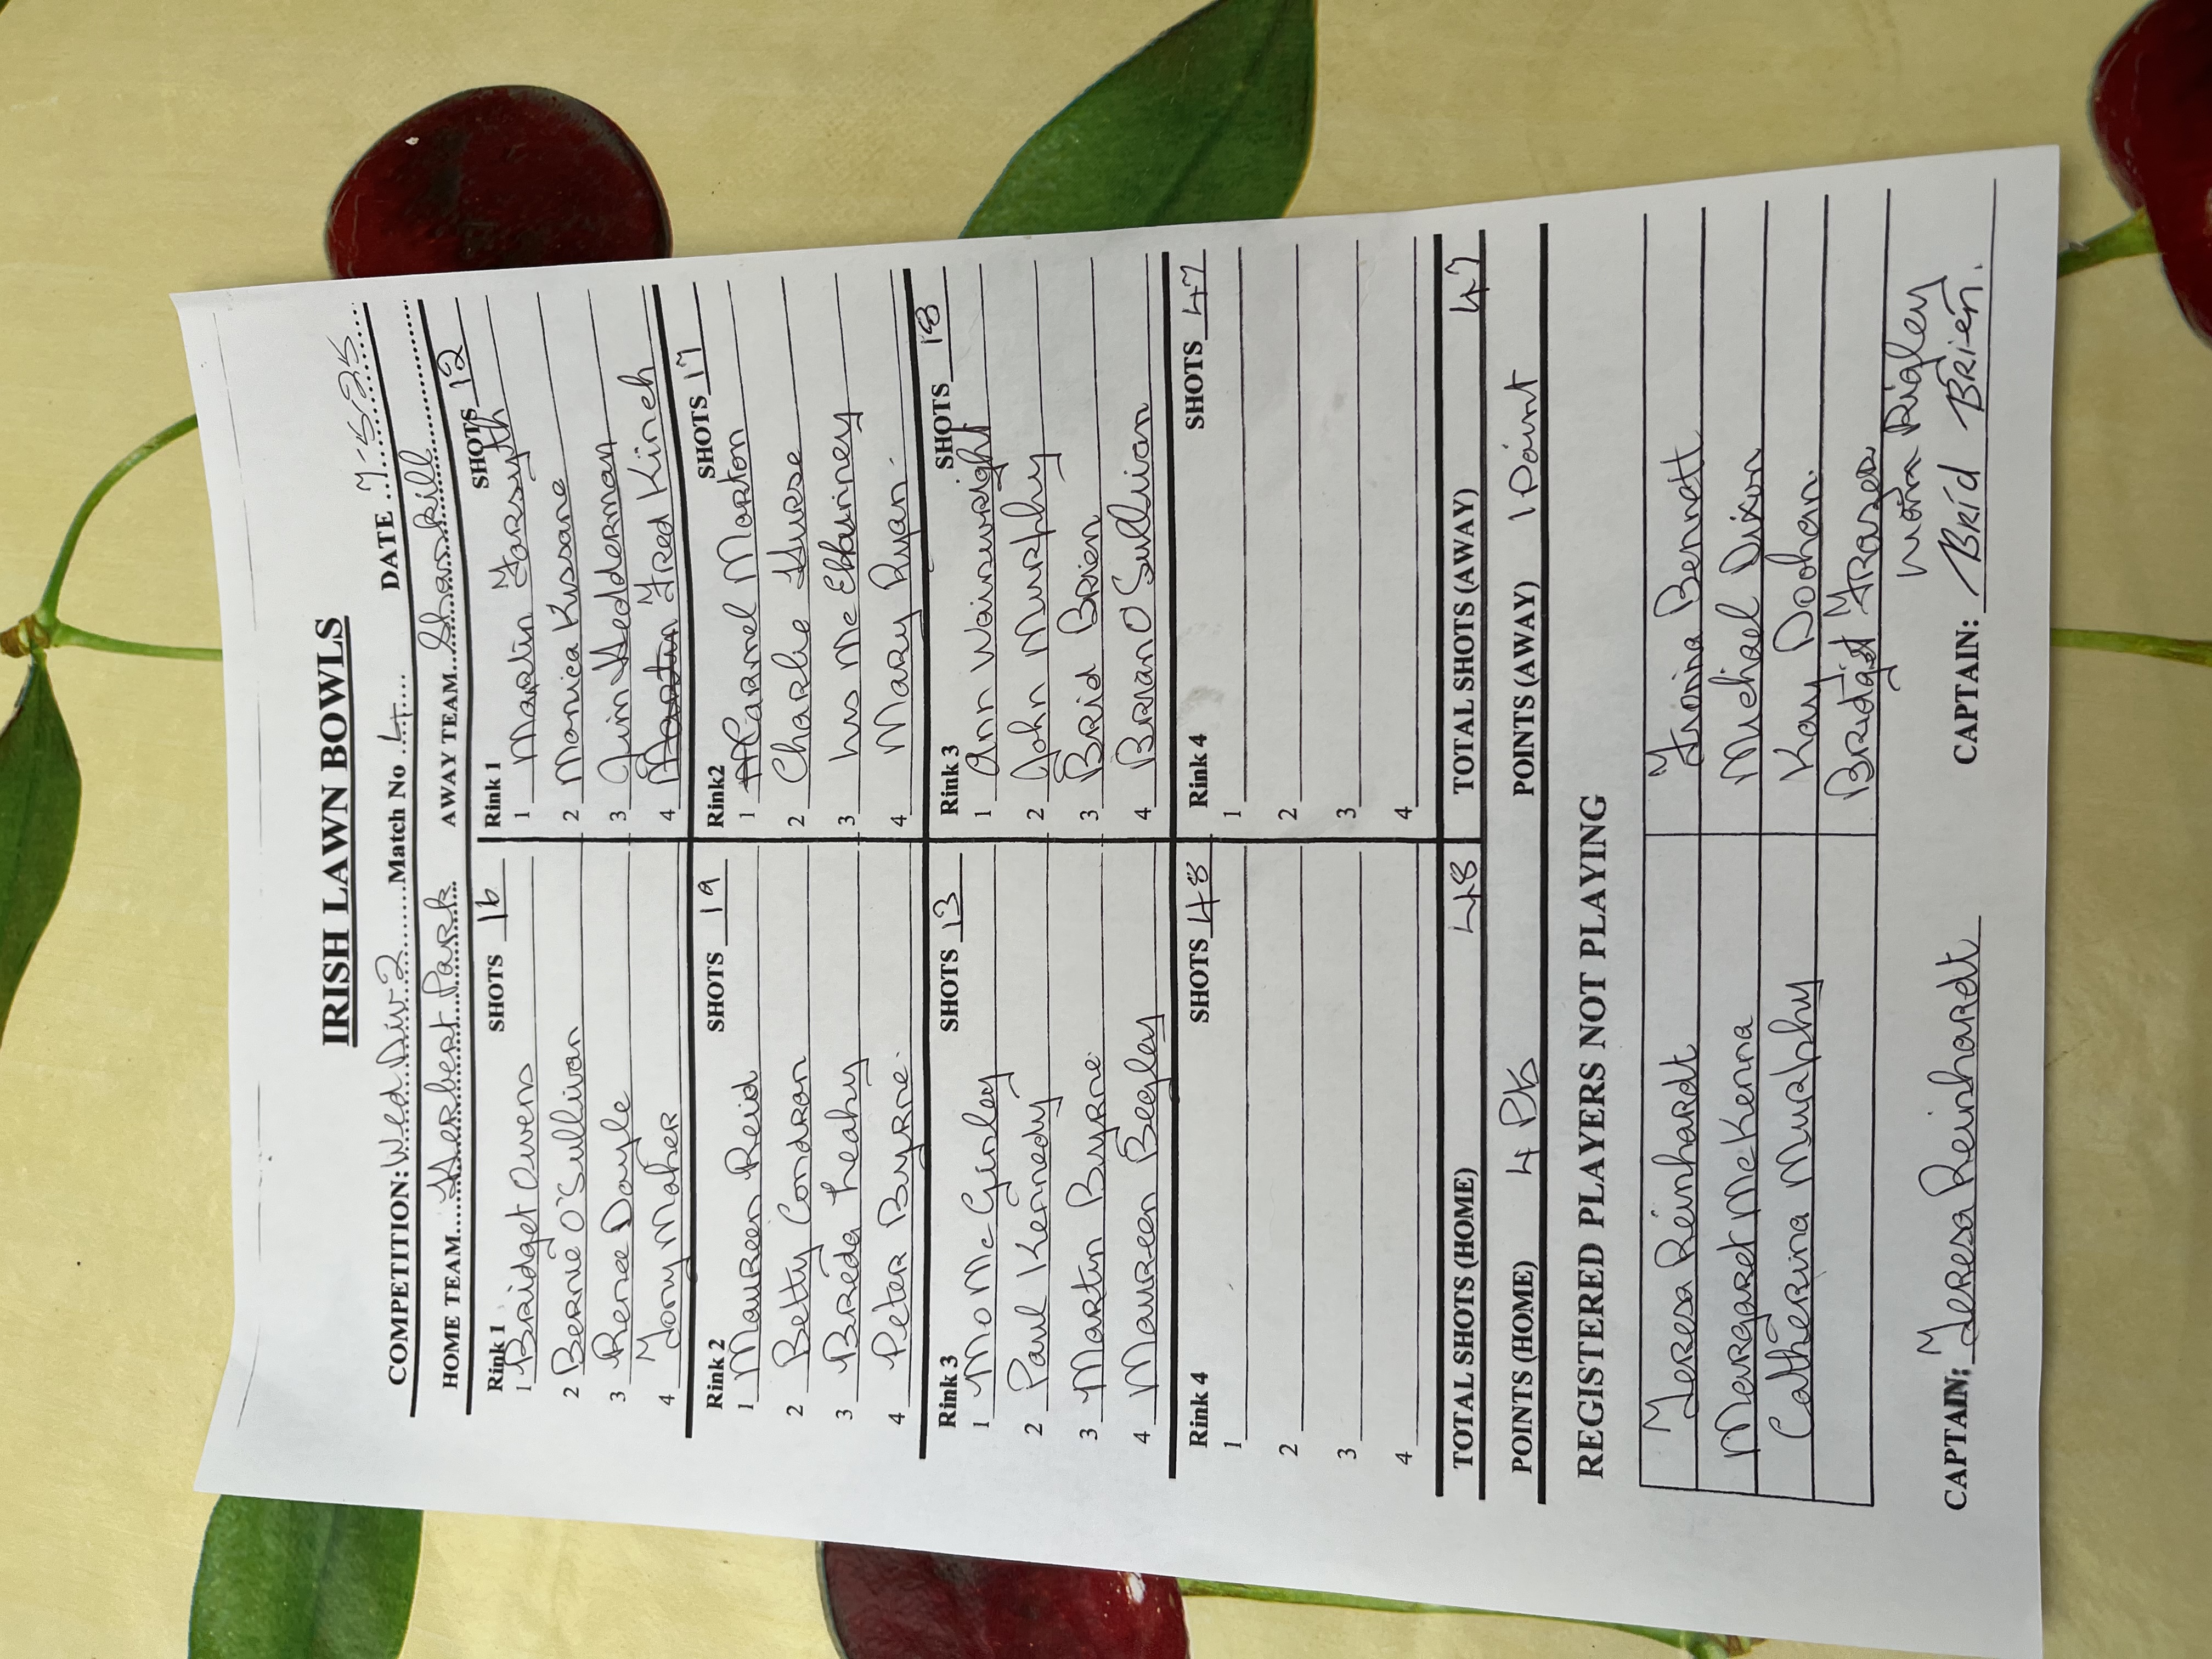 IRISH LAWN BOWLS
COMPETITION: Wed Div 2 Match No 4 DATE 7-5-25
HOME TEAM Herbert Park AWAY TEAM Shankill
Rink 1 SHOTS 16 Rink 1 SHOTS 12
1 Bridget Owens 1 Martin Forsyth
2 Bernie O'Sullivan 2 Monica Kissane
3 Renee Doyle 3 Jim Hedderman
4 Tony Maher 4 Martin Fred Kinch
Rink 2 SHOTS 19 Rink2 SHOTS 17
1 Maureen Reid 1 Carmel Morton
2 Betty Condron 2 Charlie Hurse
3 Breda Leahy 3
4 Peter Byrne. 4 Mary Ryan.
Rink 3 SHOTS 13 Rink 3 SHOTS 18
1 Mo McGinley 1 Ann Wainwright
2 Paul Kennedy 2 John Murphy
3 Martin Byrne 3 Brid Brien
4 Maureen Begley 4 Brian O Sullivan
Rink 4 SHOTS 48 Rink 4 SHOTS 47
1 1
2 2
3 3
4 4
TOTAL SHOTS (HOME) 48 TOTAL SHOTS (AWAY) 47
POINTS (HOME) 4 Pts POINTS (AWAY) 1 Point
REGISTERED PLAYERS NOT PLAYING
Teresa Reinhardt Triona Bennett
Margaret McKenna Michael Dixon
Catherina Murphy Kay Doohan
Bridget Frazer
Rigley
CAPTAIN: Teresa Reinhardt CAPTAIN: Bríd Brien.